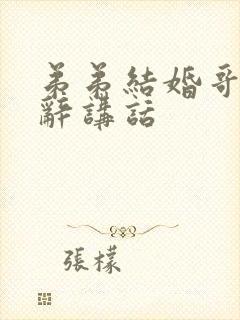 弟弟結婚哥
辭講話
張檬